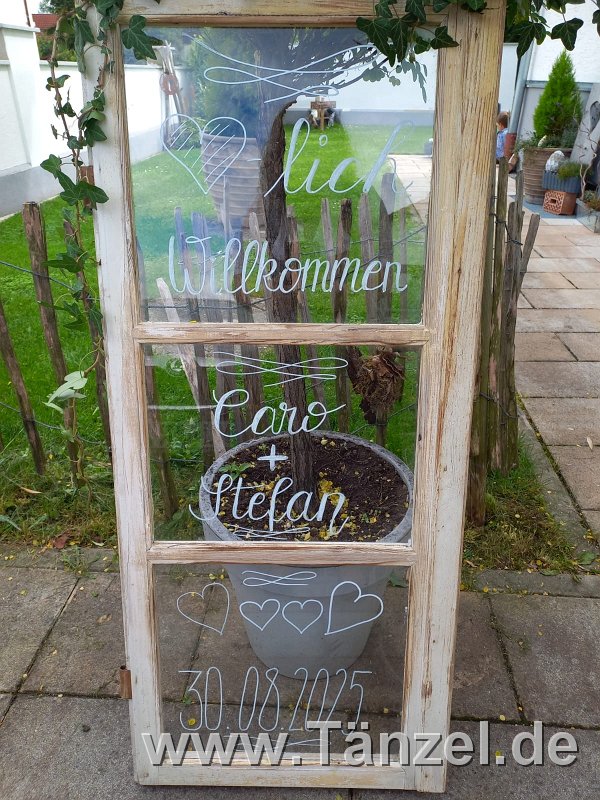 -lich
Willkommen
Caro
+
Stefan
30.08.2025
www.Tänzel.de